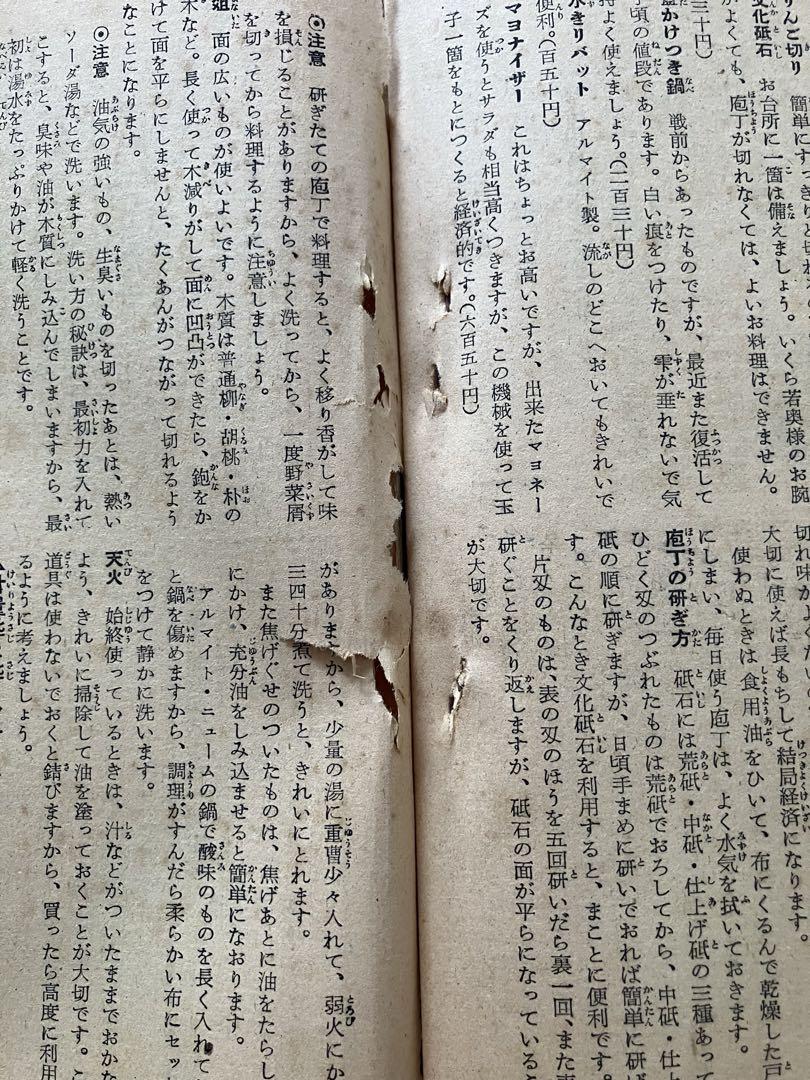 りんご切り 簡単にすっきりと切れ
文化砥石 お台所に一箇は備えましょう。いくら若奥様のお腕
がよくても、庖丁が切れなくては、よいお料理はできません。
三十円)
かけつき鍋 戦前からあったものですが、最近また復活して
頃の値段であります。白い痕をつけたり、雫が垂れないで気
持よく使えましょう。(二百三十円)
水きりバット アルマイト製。流しのどこへおいてもきれいで
便利。(百五十円)
マヨナイザー これはちょっとお高いですが、出来たマヨネー
ズを使うとサラダも相当高くつきますが、この機械を使って玉
子一箇をもとにつくると経済的です。(六百五十円)
切れ味が
大切に使えば長もちして結局経済になります。
使わぬときは食用油をひいて、布にくるんで乾燥した戸
にしまい、毎日使う庖丁は、よく水気を拭いておきます。
庖丁の研ぎ方 砥石には荒砥・中砥・仕上げ砥の三種あって
ひどく刃のつぶれたものは荒砥でおろしてから、中砥・仕上
砥の順に研ぎますが、日頃手まめに研いでおれば簡単に研げ
す。こんなとき文化砥石を利用すると、まことに便利です。
片刃のものは、表の刃のほうを五回研いだら裏一回、また表
研ぐことをくり返しますが、砥石の面が平らになっているこ
が大切です。
◎注意 研ぎたての庖丁で料理すると、よく移り香がして味
を損じることがありますから、よく洗ってから、一度野菜屑
を切ってから料理するように注意しましょう。
俎 面の広いものが使いよいです。木質は普通柳・胡桃・朴の
木など。長く使って木減りがして面に凹凸ができたら、鉋をか
けて面を平らにしませんと、たくあんがつながって切れるよう
なことになります。
◎注意 油気の強いもの、生臭いものを切ったあとは、熱い
ソーダ湯などで洗います。洗い方の秘訣は、最初力を入れて
こすると、臭味や油が木質にしみ込んでしまいますから、最
初は湯水をたっぷりかけて軽く洗うことです。
がありますから、少量の湯に重曹少々入れて、弱火にか
三四十分煮て洗うと、きれいにとれます。
また焦げぐせのついたものは、焦げあとに油をたらし
にかけ、充分油をしみ込ませると簡単になおります。
アルマイト・ニュームの鍋で酸味のものを長く入れて
と鍋を傷めますから、調理がすんだら柔らかい布にセッ
をつけて静かに洗います。
天火 始終使っているときは、汁などがついたままでおかな
よう、きれいに掃除して油を塗っておくことが大切です。こ
道具は使わないでおくと錆びますから、買ったら高度に利用
るように考えましょう。